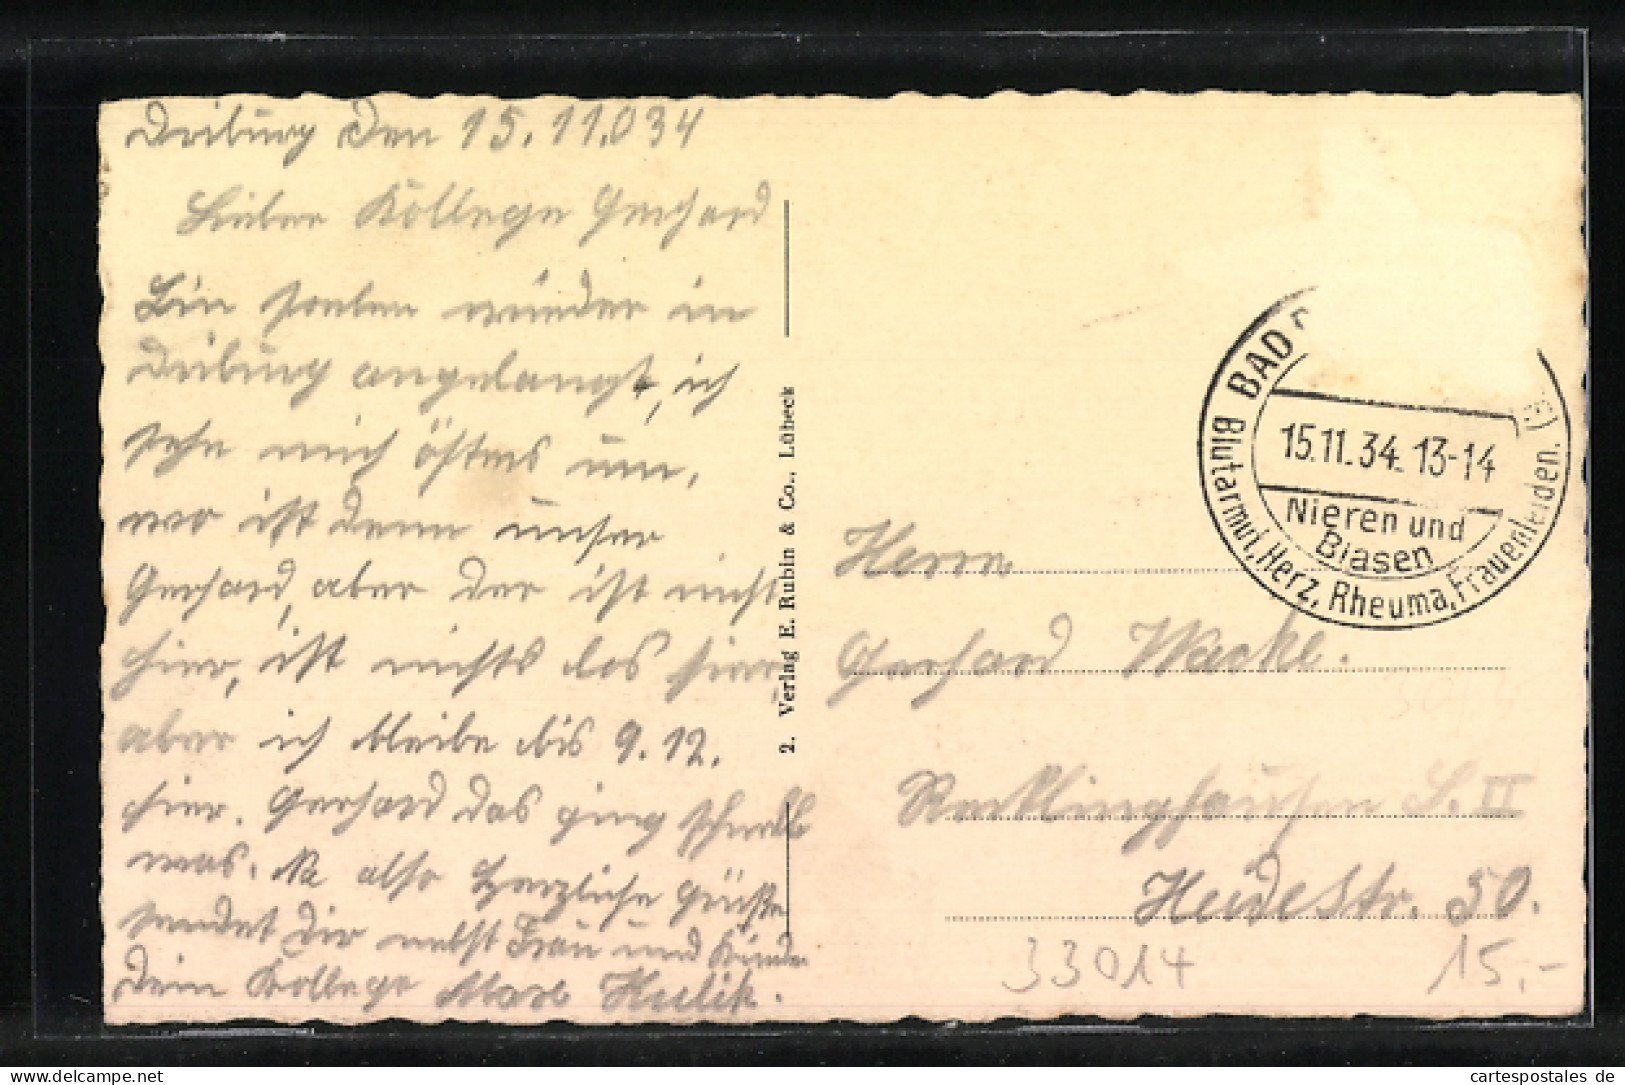 Driburg den 15.11.034
Lieber Kollege Gerhard
Bin soeben wieder in
Driburg angelangt, ich
sehe mich öfters um,
wo ist denn unser
Gerhard, aber der ist nicht
hier, ist nichts los hier
aber ich bleibe bis 9.12.
hier. Gerhard das ging schnell
was. Na also Herzliche Grüße
sendet Dir nebst Frau und Kinder
Dein Kollege Max
2. Verlag E. Rubin & Co., Lübeck
BAD
15.11.34. 13-14
Nieren und
Blasen
Blutarmut, Herz, Rheuma, Frauenleiden.
Herrn
Gerhard
Recklinghausen S. II
Heidestr. 50.
33014 15,-
delcampe.net
cartespostales de